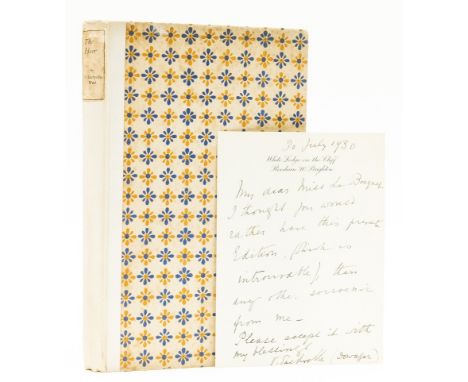 The
Heir
by
V. Sackville
West
30 July 1930
White Lodge on the Cliff
Roedean W. Brighton
My dear Miss La
I thought you would
rather have this private
Edition, (which is
introuvable) than
any other souvenir
from me –
Please accept it with
my blessing!
V Sackville (Dowager)